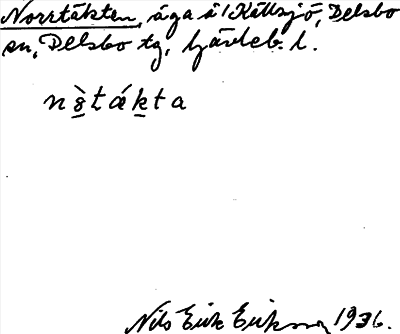 Norrtäkten, äga å! Källsjö, Delsbo
sn, Delsbo tg, Gävleb. l.
n8̀tákta
Nils Erik Eriksson 1936.